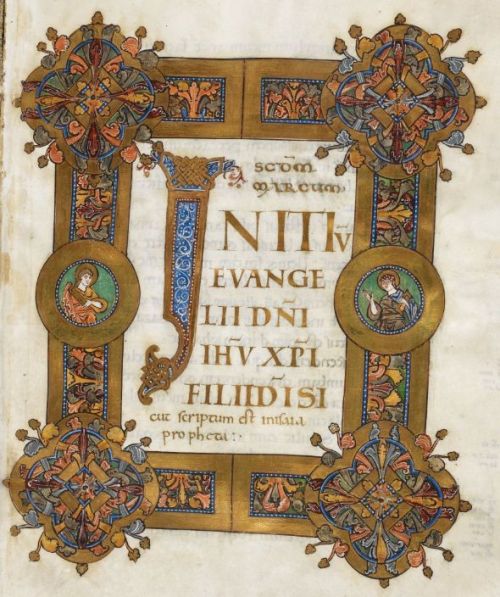 SCD̄M
MARCUM,
INITIŪ
EVANGE
LII DN̄I
IHŪ XP̄I
FILII DĪ SI
cut scriptum est in isaia
propheta:·